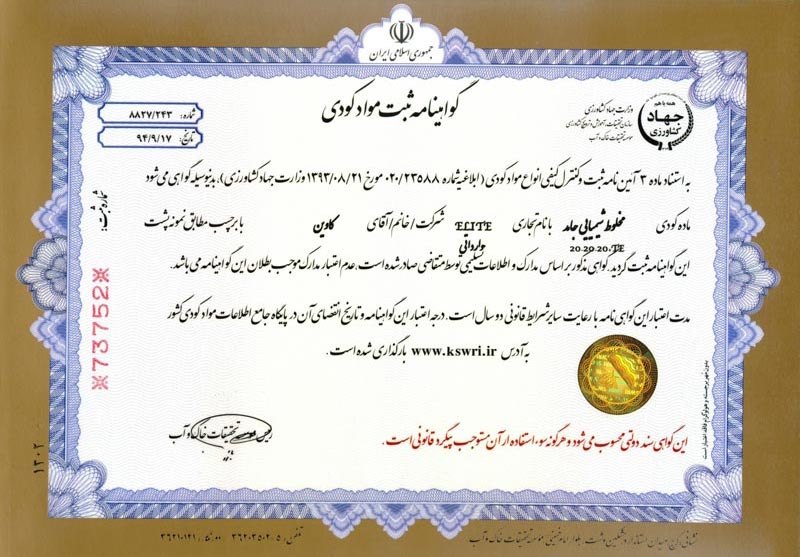 جمهوری اسلامی ایران
گواهینامه ثبت مواد کودی
شماره: ۸۸۲۷/۲۴۳
تاریخ: ۹۴/۹/۱۷
همه با هم
جهاد
کشاورزی
وزارت جهاد کشاورزی
سازمان تحقیقات، آموزش و ترویج کشاورزی
موسسه تحقیقات خاک و آب
به استناد ماده ۳ آئین نامه ثبت و کنترل کیفی انواع مواد کودی (ابلاغیه شماره ۰۲۰/۲۳۵۸۸ مورخ ۱۳۹۳/۰۸/۲۱ وزارت جهاد کشاورزی)، بدینوسیله گواهی می شود
ماده کودی مخلوط شیمیایی جامد با نام تجاری ELITE شرکت / خانم / آقای کاوین با برچسب مطابق نمونه پشت
20.20.20.TE وارداتی
این گواهینامه ثبت گردید. گواهی مذکور بر اساس مدارک و اطلاعات تسلیمی توسط متقاضی صادر شده است. عدم اعتبار مدارک موجب بطلان این گواهینامه می باشد.
مدت اعتبار این گواهی نامه با رعایت سایر شرایط قانونی دو سال است. درجه اعتبار این گواهینامه و تاریخ انقضای آن در پایگاه جامع اطلاعات مواد کودی کشور
به آدرس www.kswri.ir بارگذاری شده است.
رئیس موسسه تحقیقات خاک و آب
این گواهی سند دولتی محسوب می شود و هرگونه سوء استفاده از آن مستوجب پیگرد قانونی است.
شماره ثبت:
※73752※
بدون مهر برجسته و هولوگرام فاقد اعتبار است
۱۳۰۲
نشانی: کرج، میدان استاندارد، مشکین دشت، بلوار امام خمینی، موسسه تحقیقات خاک و آب